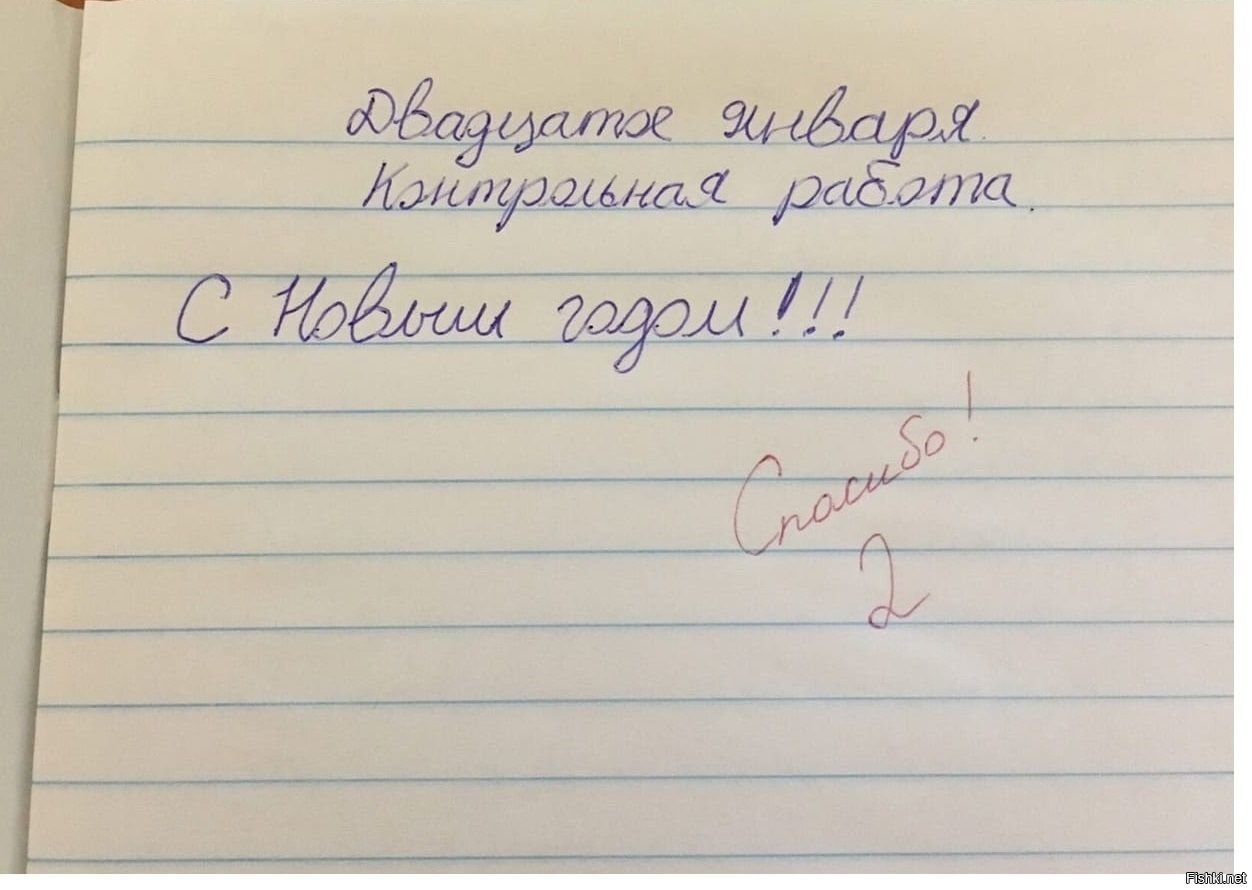 Двадцатое января.
Контрольная работа.
С Новым годом!!!
Спасибо!
2
Fishki.net